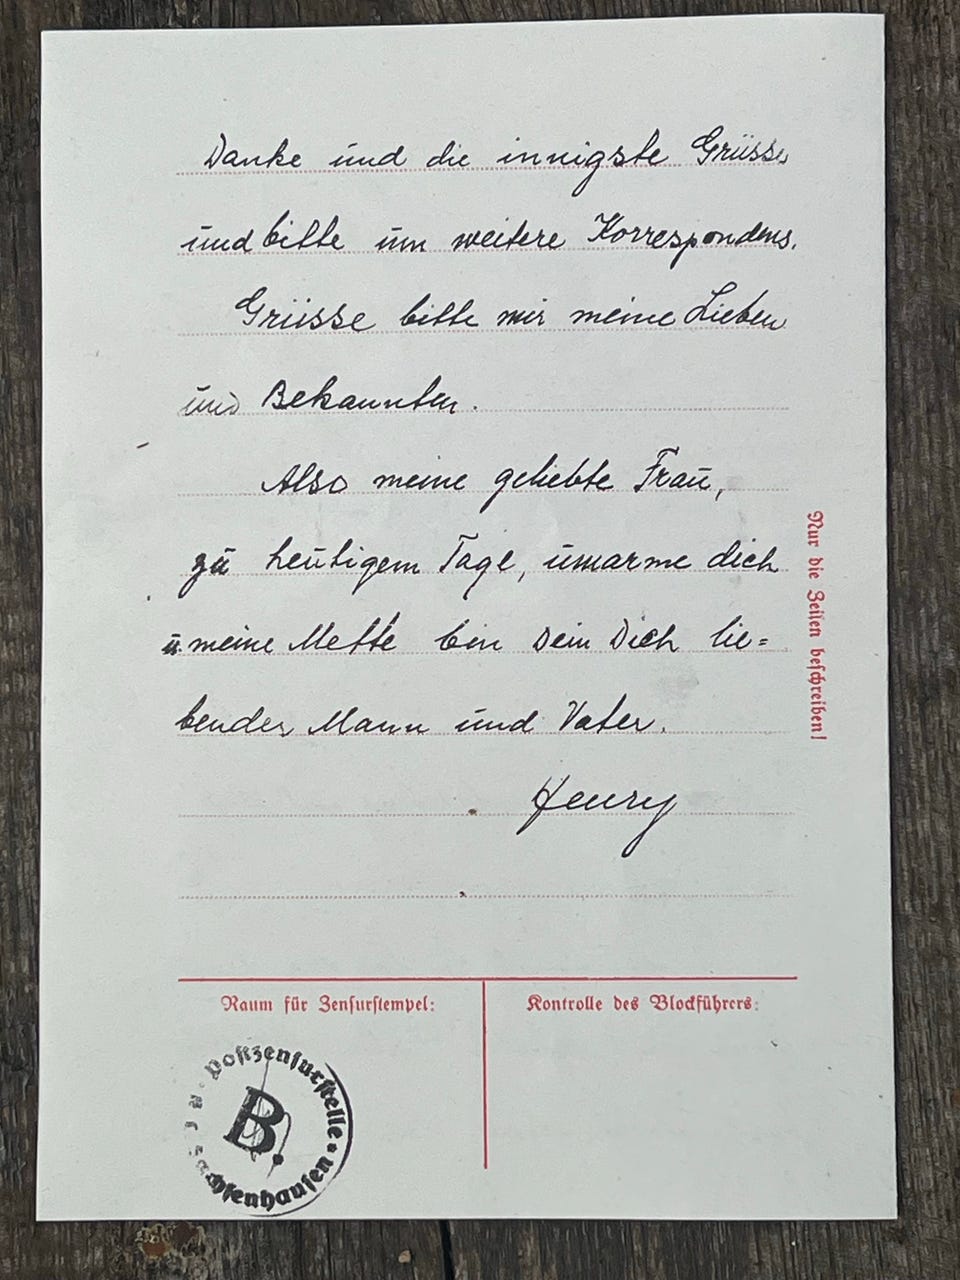 Danke und die innigste Grüsse
und bitte um weitere Korrespondens.
Grüsse bitte mir meine Lieben
und Bekannten.
Also meine geliebte Frau,
zu heutigem Tage, umarme dich
u. meine Mette bin Dein Dich lie=
bender Mann und Vater.
Henry
Nur die Zeilen beschreiben!
Raum für Zensurstempel:
Kontrolle des Blockführers:
Postzensurstelle
B.
achsenhausen